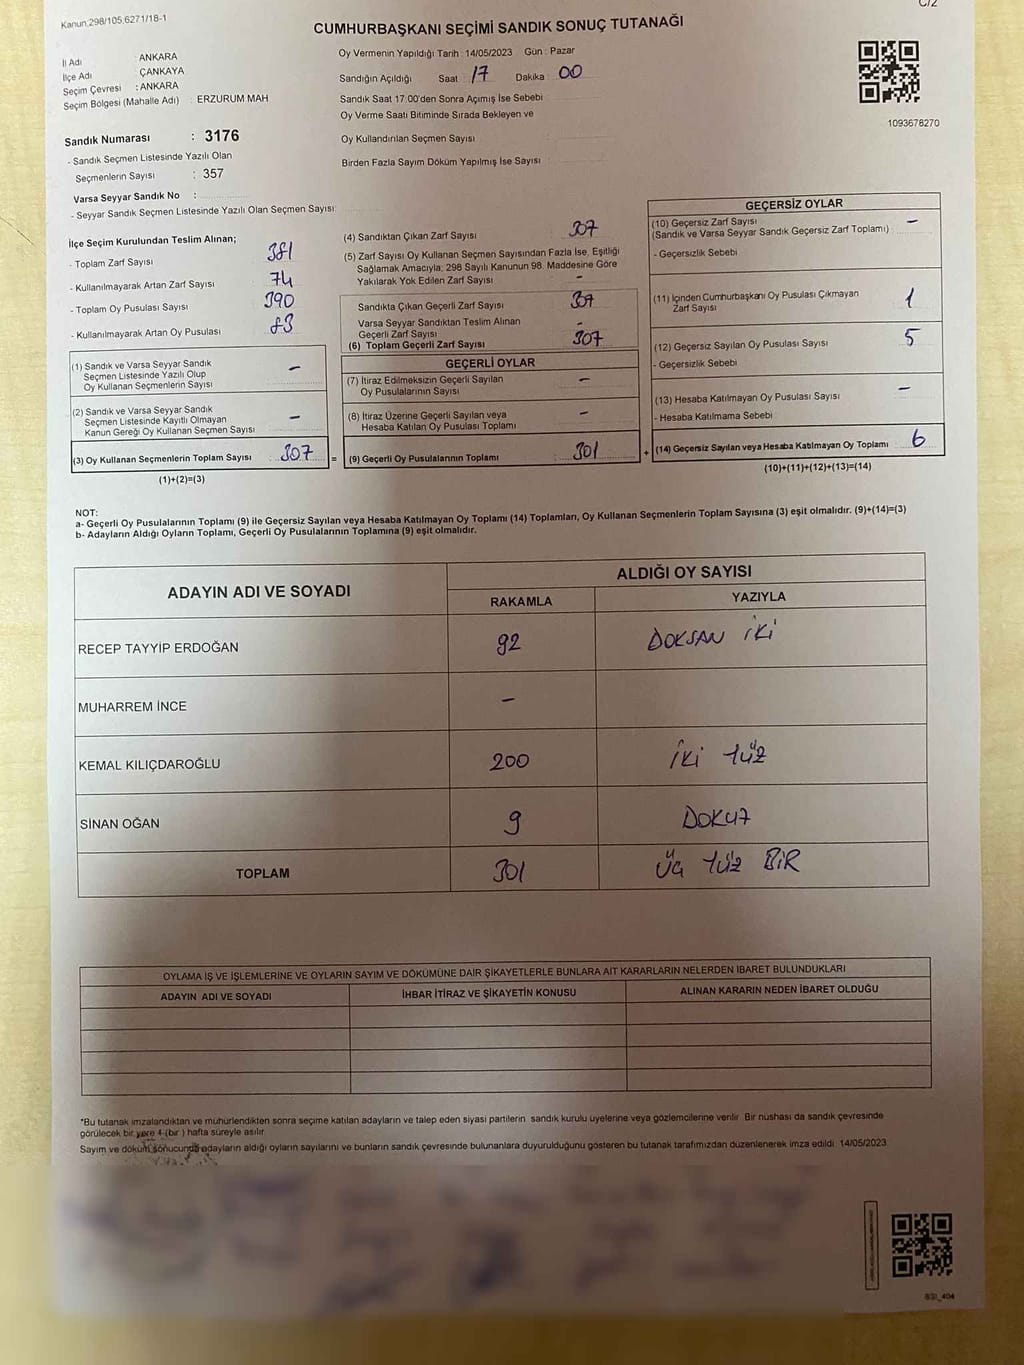 Kanun,298/105,6271/18-1
C/2
CUMHURBAŞKANI SEÇİMİ SANDIK SONUÇ TUTANAĞI
İl Adı : ANKARA
İlçe Adı : ÇANKAYA
Seçim Çevresi : ANKARA
Seçim Bölgesi (Mahalle Adı) : ERZURUM MAH
Sandık Numarası : 3176
- Sandık Seçmen Listesinde Yazılı Olan
Seçmenlerin Sayısı : 357
Varsa Seyyar Sandık No :
- Seyyar Sandık Seçmen Listesinde Yazılı Olan Seçmen Sayısı:
Oy Vermenin Yapıldığı Tarih : 14/05/2023 Gün : Pazar
Sandığın Açıldığı Saat : 17 Dakika : 00
Sandık Saat 17:00'den Sonra Açımış İse Sebebi
Oy Verme Saati Bitiminde Sırada Bekleyen ve
Oy Kullandırılan Seçmen Sayısı :
Birden Fazla Sayım Döküm Yapılmış İse Sayısı :
1093678270
İlçe Seçim Kurulundan Teslim Alınan;
- Toplam Zarf Sayısı : 381
- Kullanılmayarak Artan Zarf Sayısı : 74
- Toplam Oy Pusulası Sayısı : 390
- Kullanılmayarak Artan Oy Pusulası : 83
(1) Sandık ve Varsa Seyyar Sandık
Seçmen Listesinde Yazılı Olup
Oy Kullanan Seçmenlerin Sayısı : -
(2) Sandık ve Varsa Seyyar Sandık
Seçmen Listesinde Kayıtlı Olmayan
Kanun Gereği Oy Kullanan Seçmen Sayısı : -
(3) Oy Kullanan Seçmenlerin Toplam Sayısı : 307 =
(1)+(2)=(3)
(4) Sandıktan Çıkan Zarf Sayısı : 307
(5) Zarf Sayısı Oy Kullanan Seçmen Sayısından Fazla İse, Eşitliği
Sağlamak Amacıyla; 298 Sayılı Kanunun 98. Maddesine Göre
Yakılarak Yok Edilen Zarf Sayısı : -
Sandıkta Çıkan Geçerli Zarf Sayısı : 307
Varsa Seyyar Sandıktan Teslim Alınan
Geçerli Zarf Sayısı : -
(6) Toplam Geçerli Zarf Sayısı : 307
GEÇERLİ OYLAR
(7) İtiraz Edilmeksizin Geçerli Sayılan
Oy Pusulalarının Sayısı : -
(8) İtiraz Üzerine Geçerli Sayılan veya
Hesaba Katılan Oy Pusulası Toplamı : -
(9) Geçerli Oy Pusulalarının Toplamı : 301 +
GEÇERSİZ OYLAR
(10) Geçersiz Zarf Sayısı
(Sandık ve Varsa Seyyar Sandık Geçersiz Zarf Toplamı) : -
- Geçersizlik Sebebi
(11) İçinden Cumhurbaşkanı Oy Pusulası Çıkmayan
Zarf Sayısı : 1
(12) Geçersiz Sayılan Oy Pusulası Sayısı : 5
- Geçersizlik Sebebi
(13) Hesaba Katılmayan Oy Pusulası Sayısı : -
- Hesaba Katılmama Sebebi
(14) Geçersiz Sayılan veya Hesaba Katılmayan Oy Toplamı : 6
(10)+(11)+(12)+(13)=(14)
NOT:
a- Geçerli Oy Pusulalarının Toplamı (9) ile Geçersiz Sayılan veya Hesaba Katılmayan Oy Toplamı (14) Toplamları, Oy Kullanan Seçmenlerin Toplam Sayısına (3) eşit olmalıdır. (9)+(14)=(3)
b- Adayların Aldığı Oyların Toplamı, Geçerli Oy Pusulalarının Toplamına (9) eşit olmalıdır.
ADAYIN ADI VE SOYADI
ALDIĞI OY SAYISI
RAKAMLA YAZIYLA
RECEP TAYYİP ERDOĞAN 92 DOKSAN İKİ
MUHARREM İNCE -
KEMAL KILIÇDAROĞLU 200 İKİ YÜZ
SİNAN OĞAN 9 DOKUZ
TOPLAM 301 ÜÇ YÜZ BİR
OYLAMA İŞ VE İŞLEMLERİNE VE OYLARIN SAYIM VE DÖKÜMÜNE DAİR ŞİKAYETLERLE BUNLARA AİT KARARLARIN NELERDEN İBARET BULUNDUKLARI
ADAYIN ADI VE SOYADI İHBAR İTİRAZ VE ŞİKAYETİN KONUSU ALINAN KARARIN NEDEN İBARET OLDUĞU
*Bu tutanak imzalandıktan ve mühürlendikten sonra seçime katılan adayların ve talep eden siyasi partilerin sandık kurulu üyelerine veya gözlemcilerine verilir. Bir nüshası da sandık çevresinde
görülecek bir yere 1 (bir) hafta süreyle asılır.
Sayım ve döküm sonucunda adayların aldığı oyların sayılarını ve bunların sandık çevresinde bulunanlara duyurulduğunu gösteren bu tutanak tarafımızdan düzenlenerek imza edildi. 14/05/2023